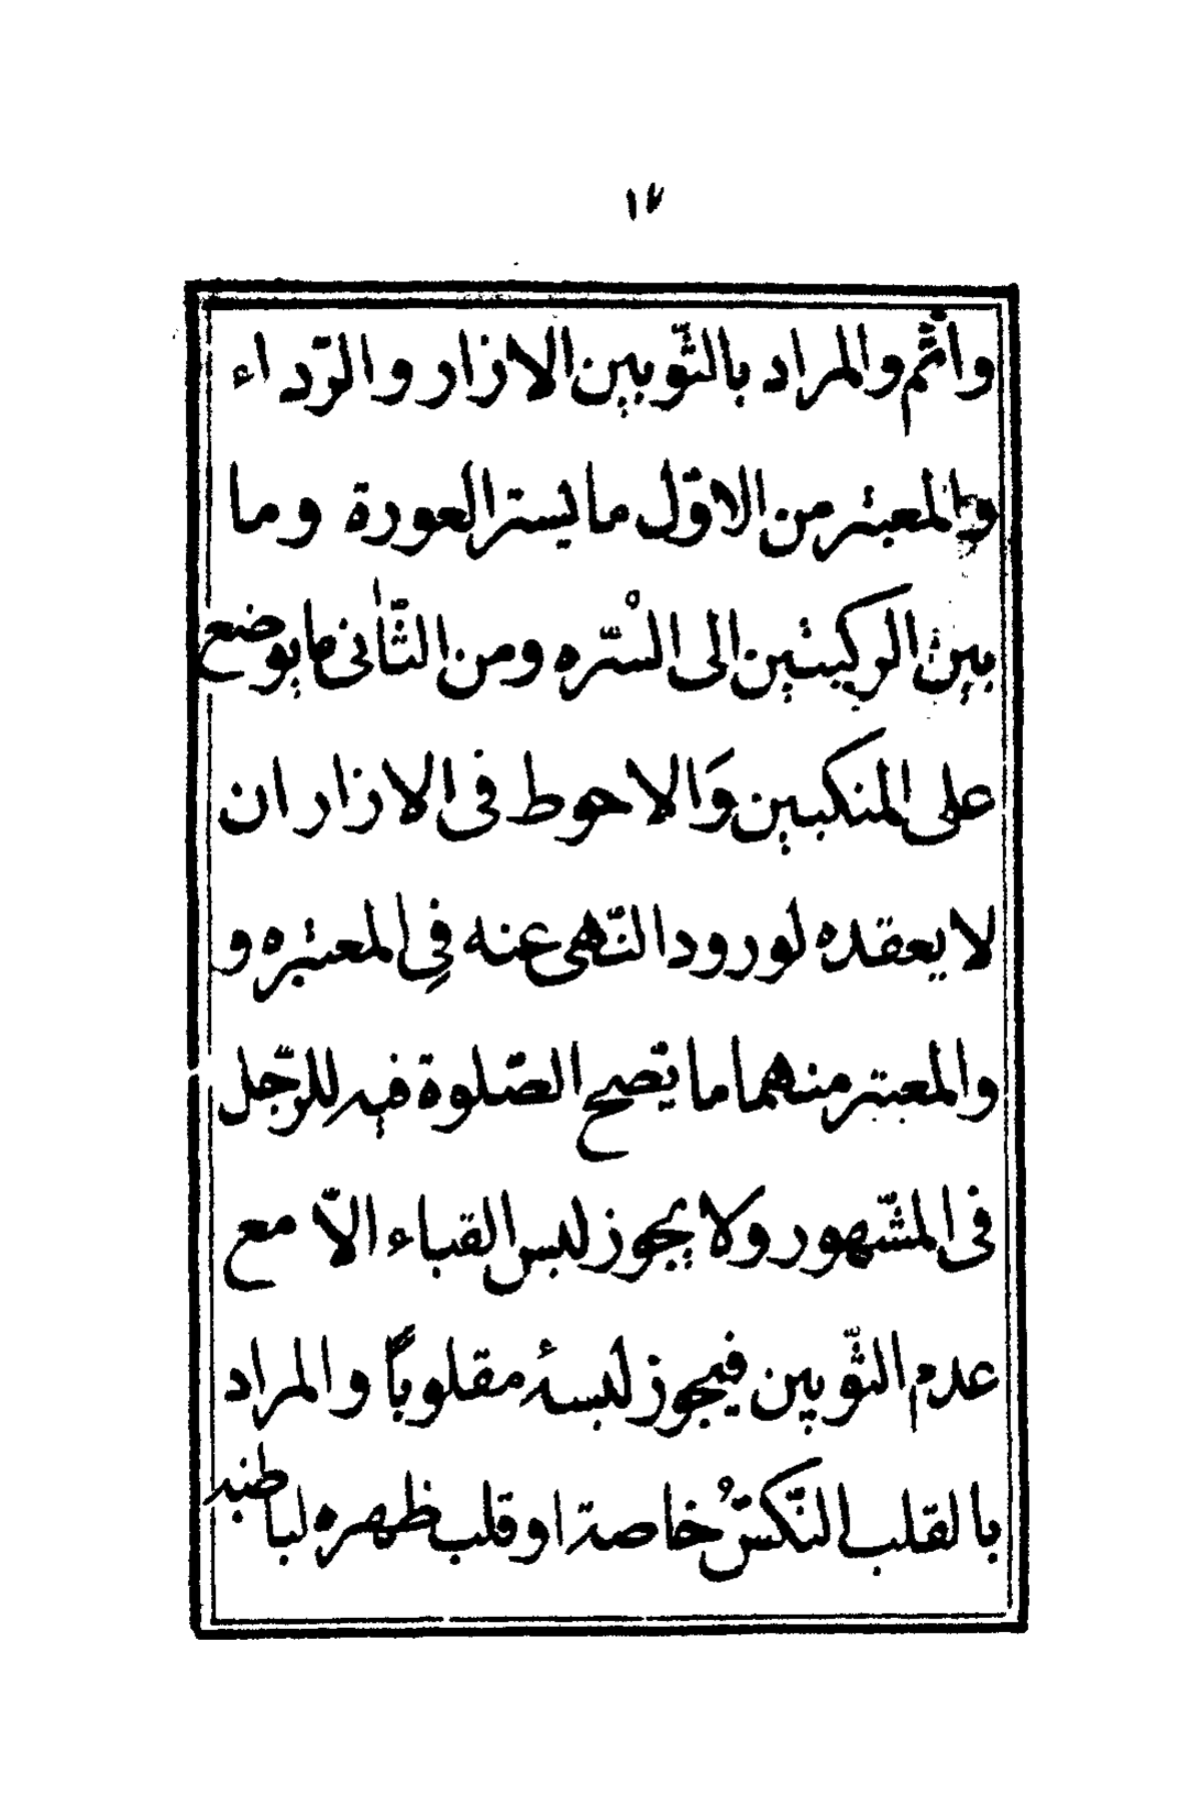 ١٧
واثم والمراد بالثّوبين الازار والرّداء
والمعتبر من الاوّل ما يستر العورة وما
بين الركبتين الى السّره ومن الثّانى ما يوضع
على المنكبين وَالاحوط فى الازار ان
لا يعقده لورود النّهى عنه فِى المعتبره و
والمعتبر منهما ما تصّح الصّلوة فيه للرّجل
فى المشّهور ولا يجوز لبس القباء الاّ مع
عدم الثّوبين فيجوز لبسهُ مقلوباً والمراد
بالقلب النّكسُ خاصة او قلب ظهره لباطنه